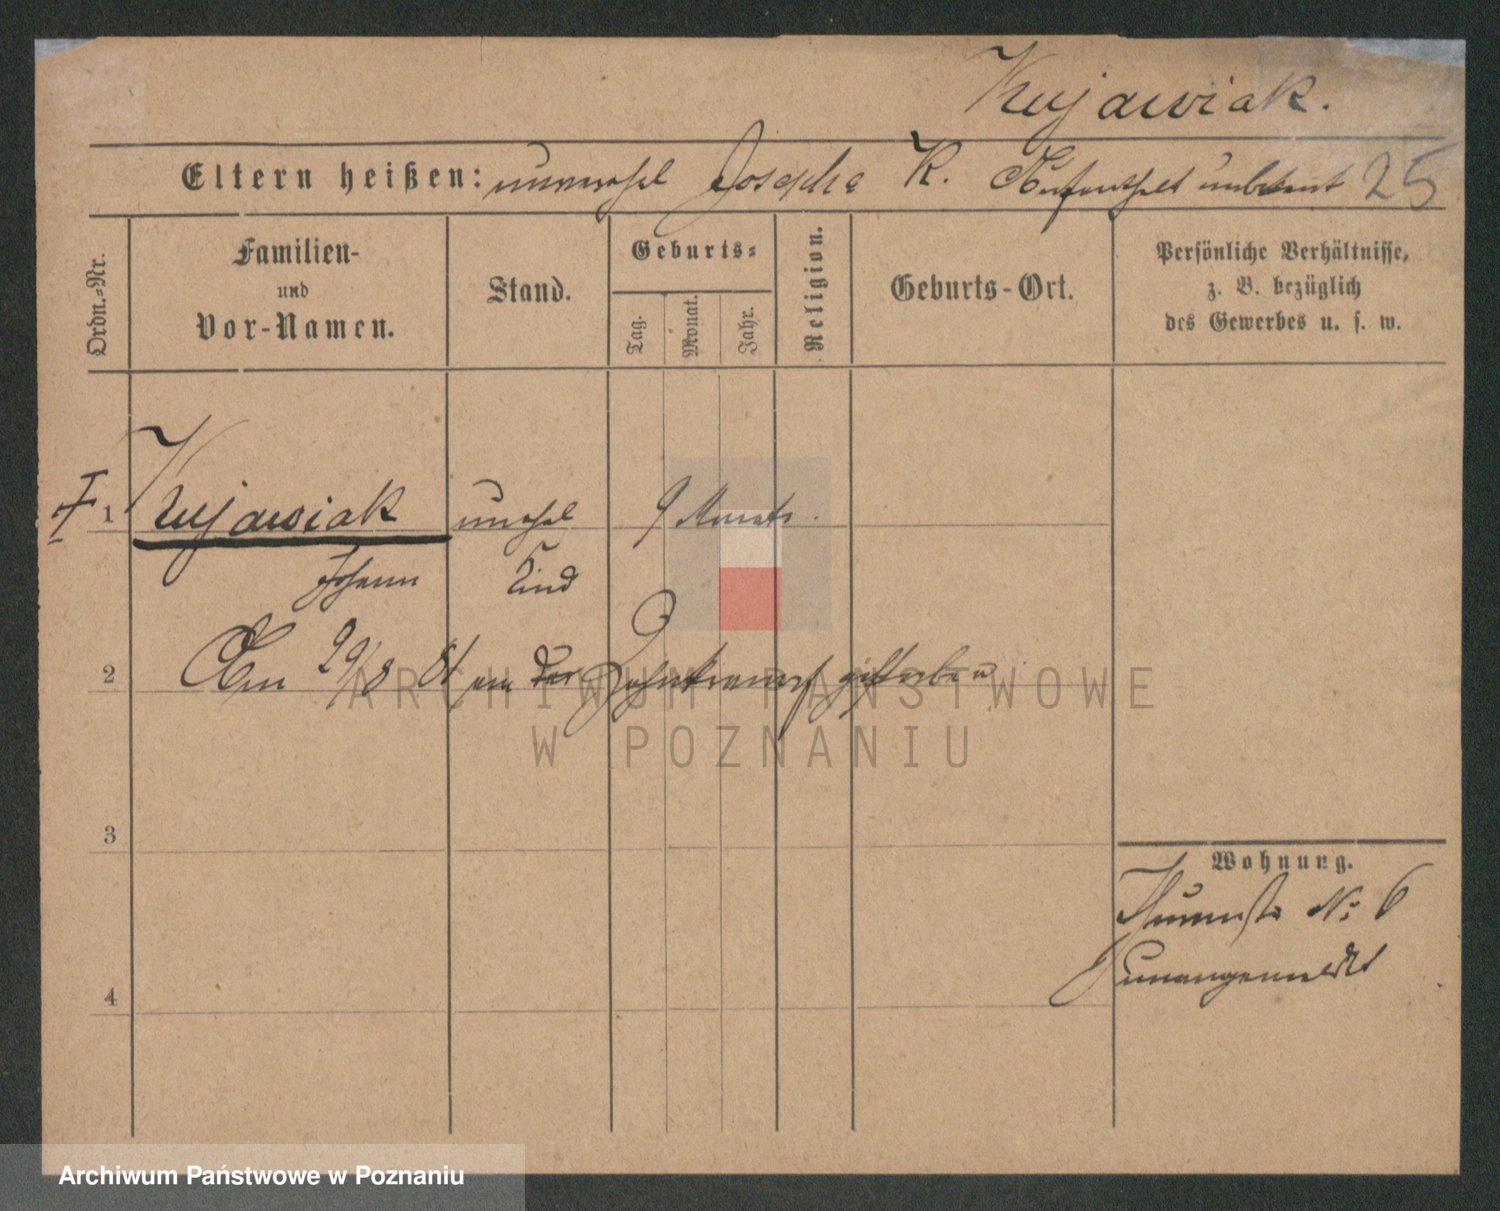 Kujawiak.
Eltern heißen: unverehel Josepha K. Aufenthalt unbekannt 25
Ordn.-Nr.
Familien-
und
Vor-Namen.
Stand.
Geburts-
Tag.
Monat.
Jahr.
Religion.
Geburts-Ort.
Persönliche Verhältnisse,
z. B. bezüglich
des Gewerbes u. s. w.
1 Kujawiak unehel 9 Monate.
Johann Kind
2 Am 29/8 81 an der Zahnkrampf gestorben
ARCHIWUM PAŃSTWOWE
W POZNANIU
3
Wohnung.
No 6
unangemeldet
4
Archiwum Państwowe w Poznaniu